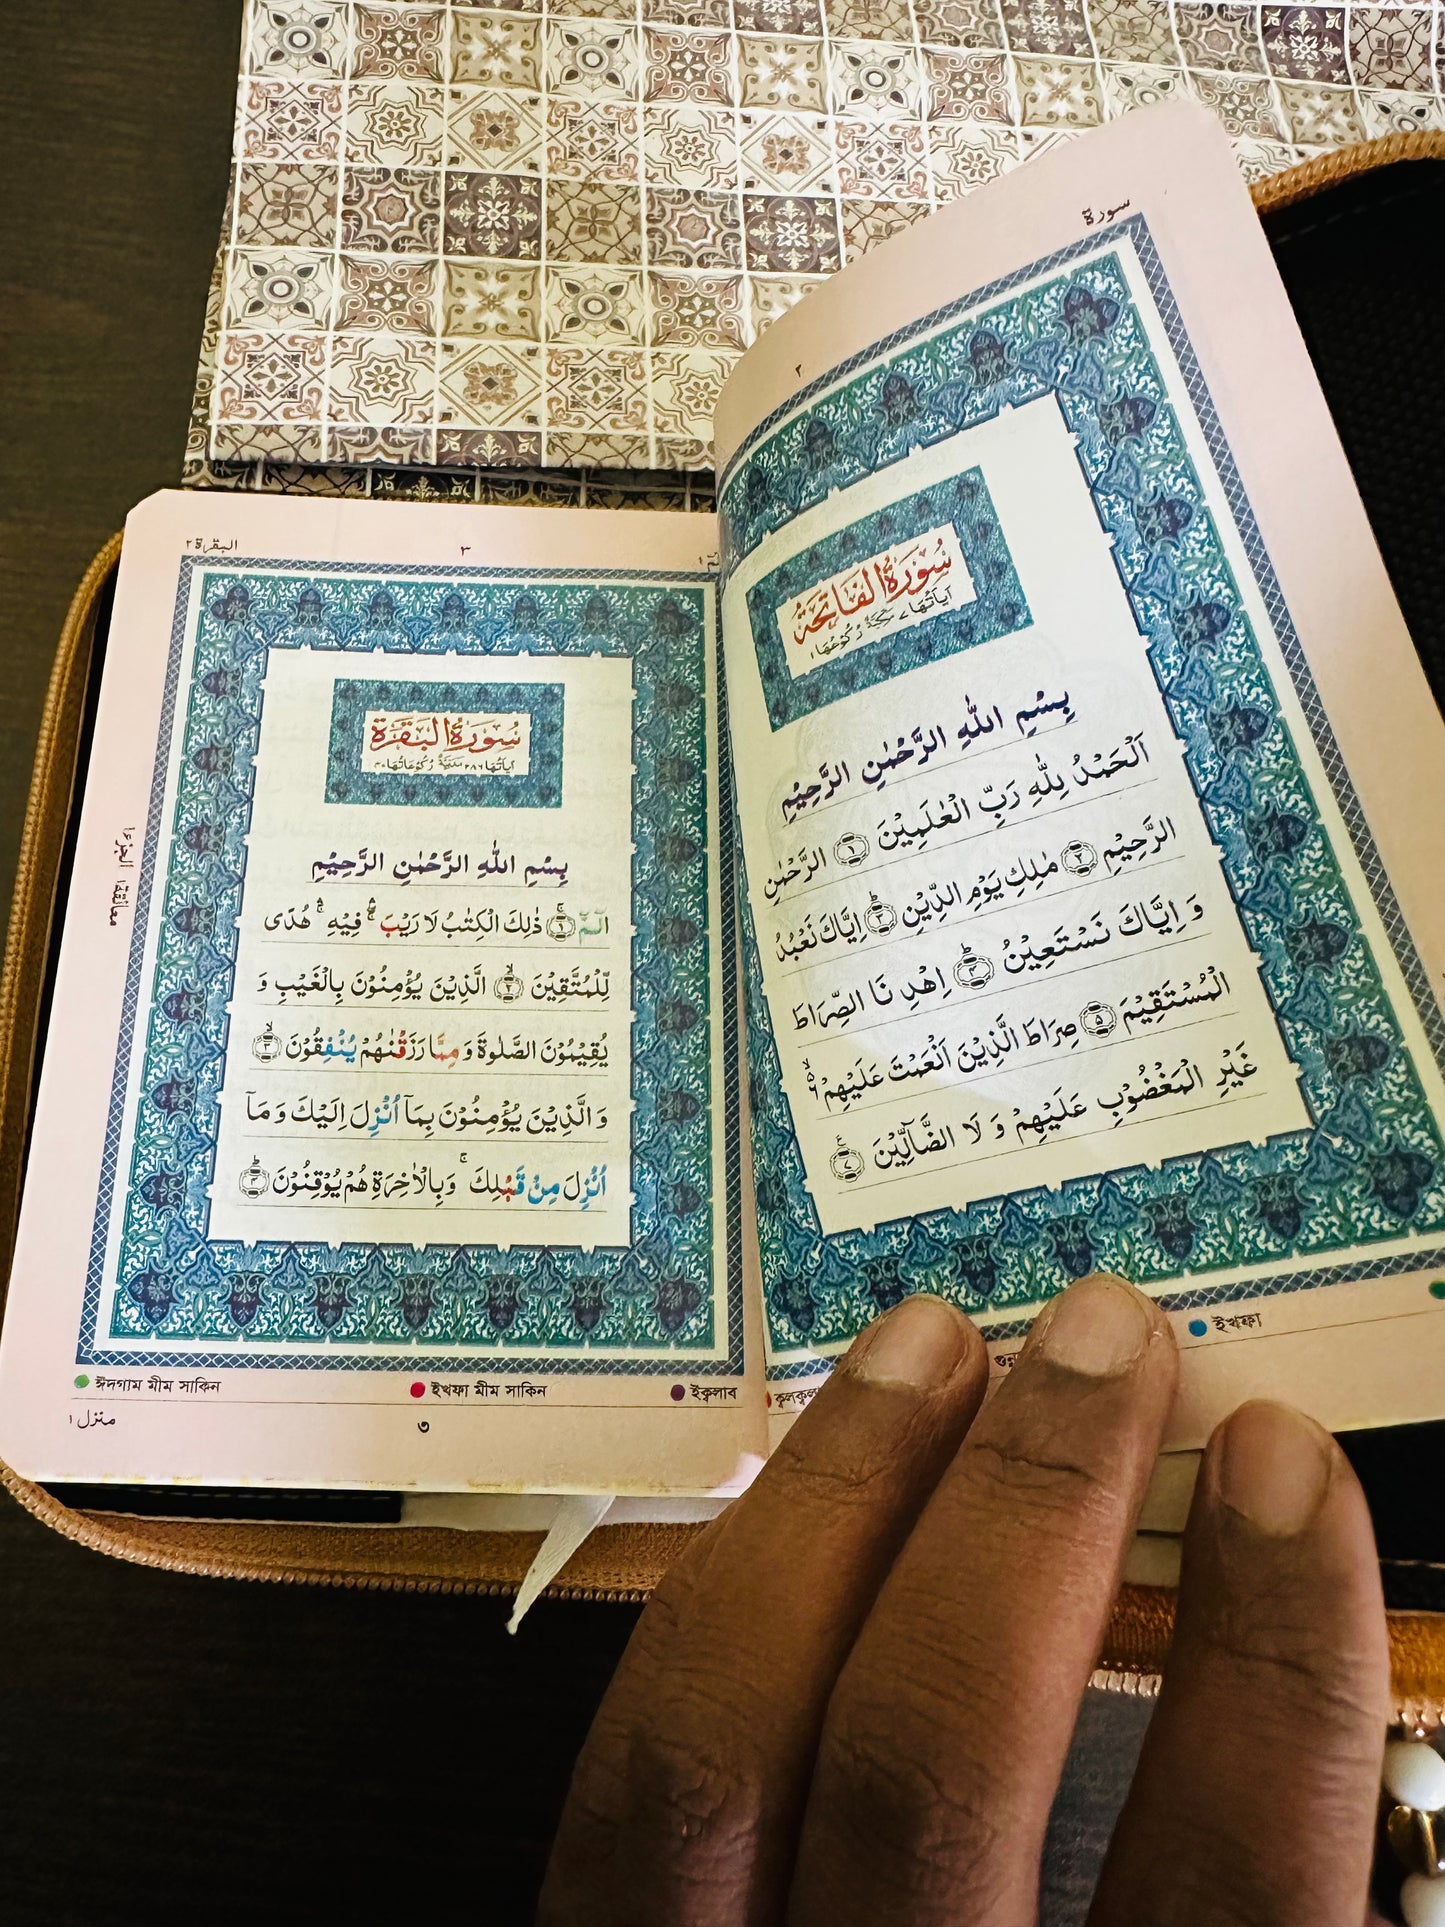 سورة
٢
سُوْرَةُ الْفَاتِحَةِ
اٰيَاتُهَا ٧ مَكِّيَّةٌ رُكُوْعُهَا ١
بِسْمِ اللّٰهِ الرَّحْمٰنِ الرَّحِيْمِ
اَلْحَمْدُ لِلّٰهِ رَبِّ الْعٰلَمِيْنَ ١ الرَّحْمٰنِ
الرَّحِيْمِ ٢ مٰلِكِ يَوْمِ الدِّيْنِ ٣ اِيَّاكَ نَعْبُدُ
وَ اِيَّاكَ نَسْتَعِيْنُ ٤ اِهْدِ نَا الصِّرَاطَ
الْمُسْتَقِيْمَ ٥ صِرَاطَ الَّذِيْنَ اَنْعَمْتَ عَلَيْهِمْ ٦
غَيْرِ الْمَغْضُوْبِ عَلَيْهِمْ وَ لَا الضَّآلِّيْنَ ٧
ইখফা
البقرة ٢
٣
سُوْرَةُ الْبَقَرَةِ
اٰيَاتُهَا ٢٨٦ مَدَنِيَّةٌ رُكُوْعَاتُهَا ٤٠
بِسْمِ اللّٰهِ الرَّحْمٰنِ الرَّحِيْمِ
الٓمّٓ ١ ذٰلِكَ الْكِتٰبُ لَا رَيْبَ ۛ فِيْهِ ۛ هُدًى
لِّلْمُتَّقِيْنَ ٢ الَّذِيْنَ يُؤْمِنُوْنَ بِالْغَيْبِ وَ
يُقِيْمُوْنَ الصَّلٰوةَ وَ مِمَّا رَزَقْنٰهُمْ يُنْفِقُوْنَ ٣
وَ الَّذِيْنَ يُؤْمِنُوْنَ بِمَآ اُنْزِلَ اِلَيْكَ وَ مَآ
اُنْزِلَ مِنْ قَبْلِكَ ۚ وَبِالْاٰخِرَةِ هُمْ يُوْقِنُوْنَ ٤
معانقة ١ الجزء ١
ঈদগাম মীম সাকিন ইখফা মীম সাকিন ইক্বলাব
منزل ١
৩